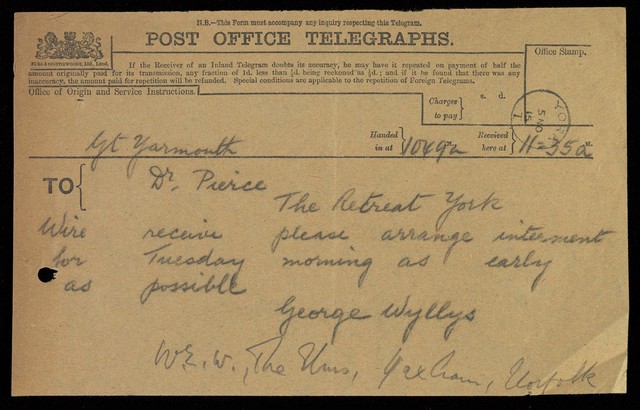 N.B.—This Form must accompany any inquiry respecting this Telegram.
POST OFFICE TELEGRAPHS.
If the Receiver of an Inland Telegram doubts its accuracy, he may have it repeated on payment of half the
amount originally paid for its transmission, any fraction of 1d. less than ½d. being reckoned as ½d.; and if it be found that there was any
inaccuracy, the amount paid for repetition will be refunded. Special conditions are applicable to the repetition of Foreign Telegrams.
Office Stamp.
Office of Origin and Service Instructions.
Charges to pay
s. d.
YORK
5 NO
15
Gt Yarmouth
Handed in at
1049a
Received here at
11-35a
TO
Dr. Pierce
The Retreat York
Wire receive please arrange interment
for Tuesday morning as early
as possible
George Wyllys
W.E.W., The Norfolk